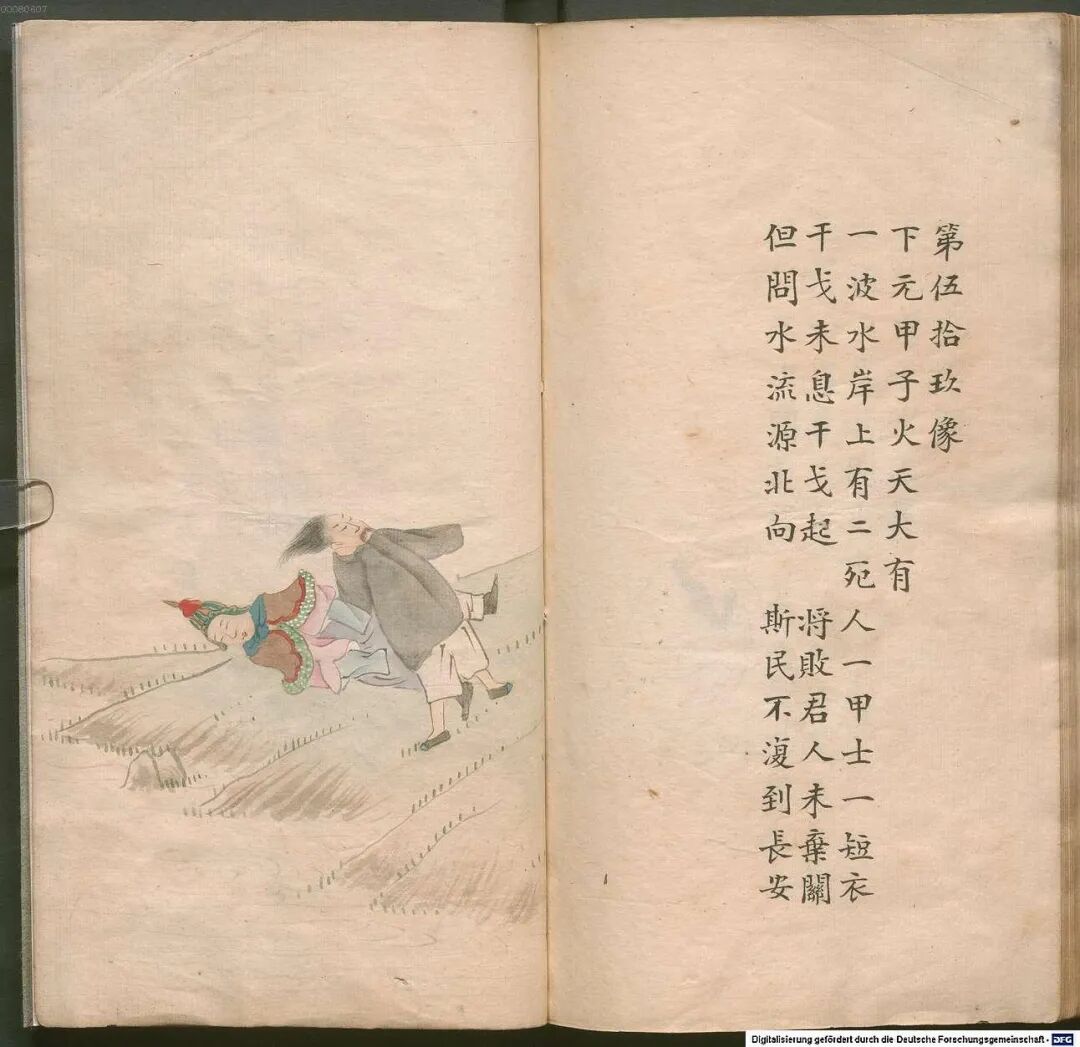 00080607
第伍拾玖像
下元甲子火天大有
一波水岸上有二死人一甲士一短衣
干戈未息干戈起 将敗君人未棄關
但問水流源北向 斯民不復到長安
Digitalisierung gefördert durch die Deutsche Forschungsgemeinschaft - DFG